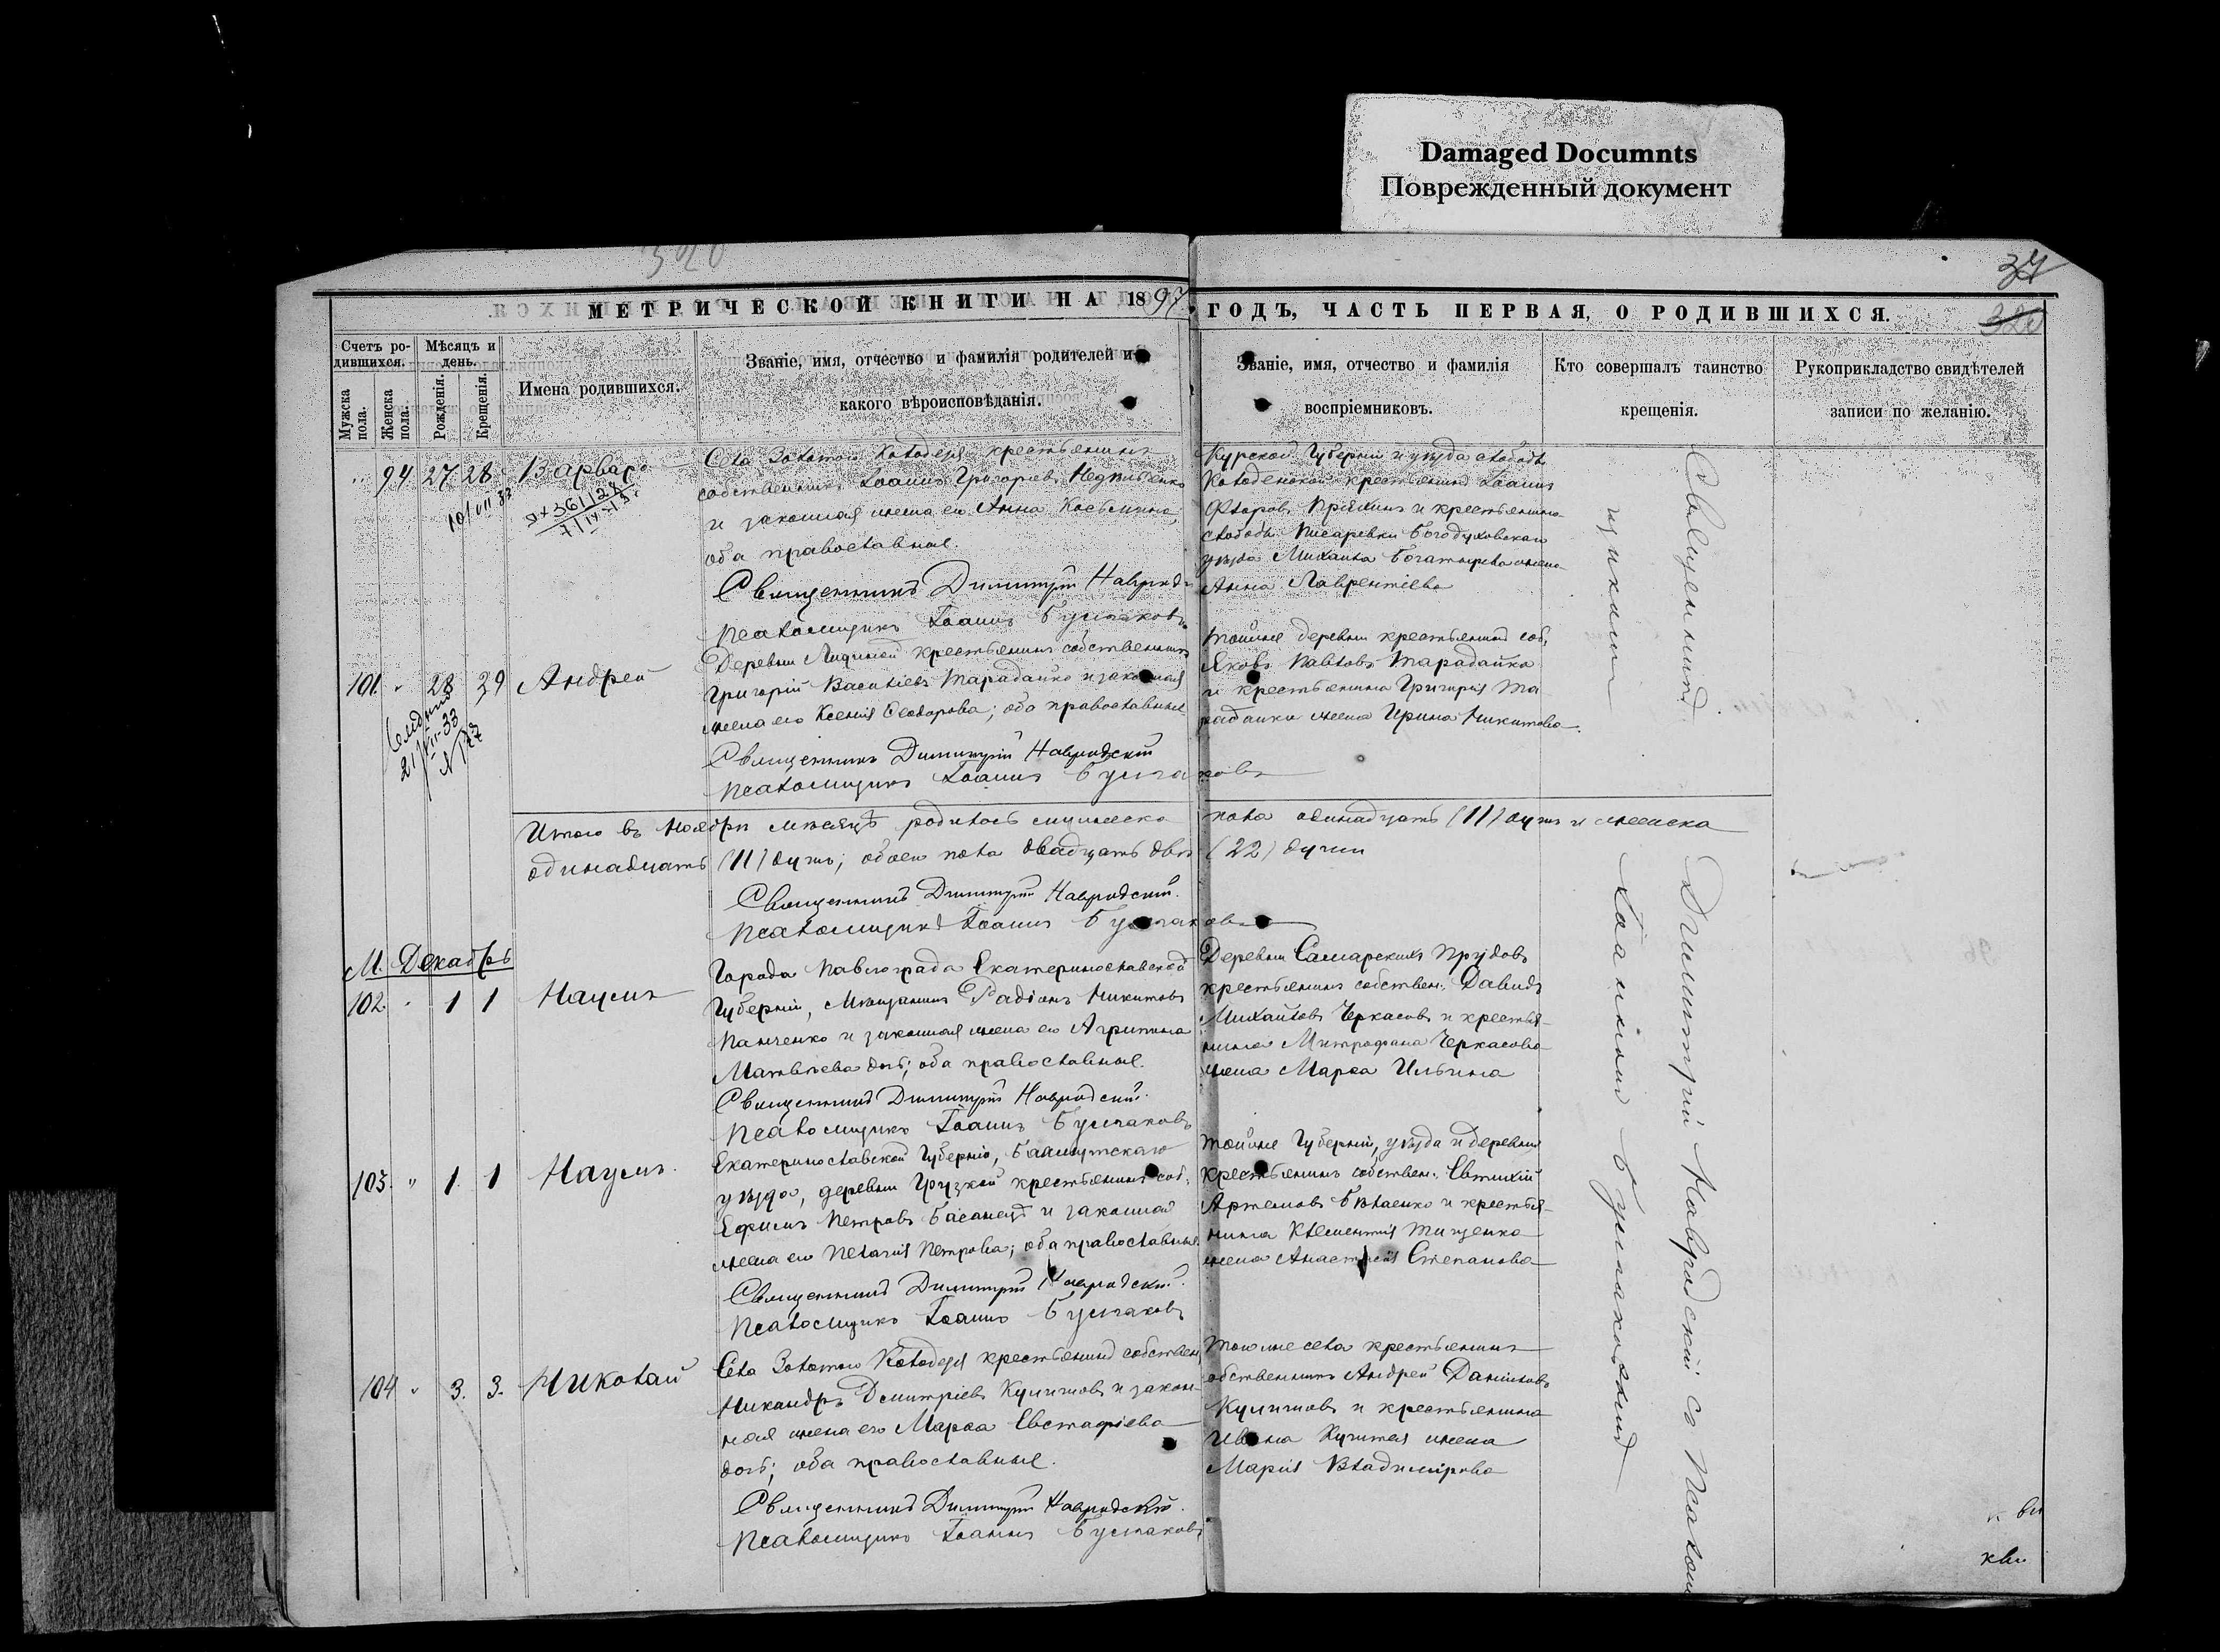 Damaged Documnts
Поврежденный документ
320
37
320
МЕТРИЧЕСКОЙ КНИГИ НА 1897
ГОДЪ, ЧАСТЬ ПЕРВАЯ, О РОДИВШИХСЯ.
Счетъ родившихся.
Мужска пола.
Женска пола.
Мѣсяцъ и день.
Рожденія.
Крещенія.
Имена родившихся.
Званіе, имя, отчество и фамилія родителей и
какого вѣроисповѣданія.
Званіе, имя, отчество и фамилія
воспріемниковъ.
Кто совершалъ таинство
крещенія.
Рукоприкладство свидѣтелей
записи по желанію.
94 27 28 Варвара
10/VII 32
Села Золотого Колодезя крестьянинъ
собственникъ Іоаннъ Григорьевъ
и законная жена его Анна
оба православные.
Священникъ Димитрій Навродскій
Псаломщикъ Іоаннъ Бушаковъ
Курской Губерніи и уѣзда слободы
крестьянинъ Іоаннъ
и крестьянина
слободы Писаревки Богодуховскаго
уѣзда Михаила жена
Анна Лаврентіева
101 " 28 29 Андрей
21/VII-33
Деревни крестьянинъ собственникъ
Григорій Васильевъ Тарадайко и законная
жена его Ксенія Ѳеодорова; оба православные
Священникъ Димитрій Навродскій
Псаломщикъ Іоаннъ Бушаковъ
Тойже деревни крестьянинъ соб.
Яковъ Павловъ Тарадайко
и крестьянина Григорія Та
радайки жена Ирина Никитова.
Итого въ Ноябрѣ мѣсяцѣ родилось мужеска пола одинадцать (11) душъ и женска
одинадцать (11) душъ; обоего пола двадцать двѣ (22) души
Священникъ Димитрій Навродскій.
Псаломщикъ Іоаннъ Бушаковъ
М. Декабрь
102. " 1 1 Наумъ
Города Павлограда Екатеринославской
Губерніи, Мѣщанинъ Радіонъ Никитовъ
Панченко и законная жена его Агрипина
Матвѣева дочь; оба православные.
Священникъ Димитрій Навродскій.
Псаломщикъ Іоаннъ Бушаковъ
Деревни Самарскихъ Прудовъ
крестьянинъ собствен. Давидъ
Михайловъ Черкасовъ и крестья-
нина Митрофана Черкасова
жена Марѳа Ильина
103. " 1. 1 Наумъ.
Екатеринославской Губерніи, Бахмутскаго
уѣзда, деревни Грузкой крестьянинъ соб.
Ефимъ Петровъ и законная
жена его Пелагія Петрова; оба православные.
Священникъ Димитрій Навродскій.
Псаломщикъ Іоаннъ Бушаковъ
Тойже Губерніи, уѣзда и деревни
крестьянинъ собствен. Евтихій
Артемовъ и крестья-
нина Климентія Тищенко
жена Анастасія Степанова
104 " 3. 3. Николай
Села Золотого Колодезя крестьянинъ собствен.
Никандръ Дмитріевъ и закон-
ная жена его Марѳа Евстафіева
дочь; оба православные.
Священникъ Димитрій Навродскій.
Псаломщикъ Іоаннъ Бушаковъ
Тогоже села крестьянинъ
собственникъ Андрей Даниловъ
и крестьянина
Ивана жена
Марія Владимірова
Священникъ Димитрій Навродскій съ Псалом
щикомъ Іоанномъ Бушаковымъ